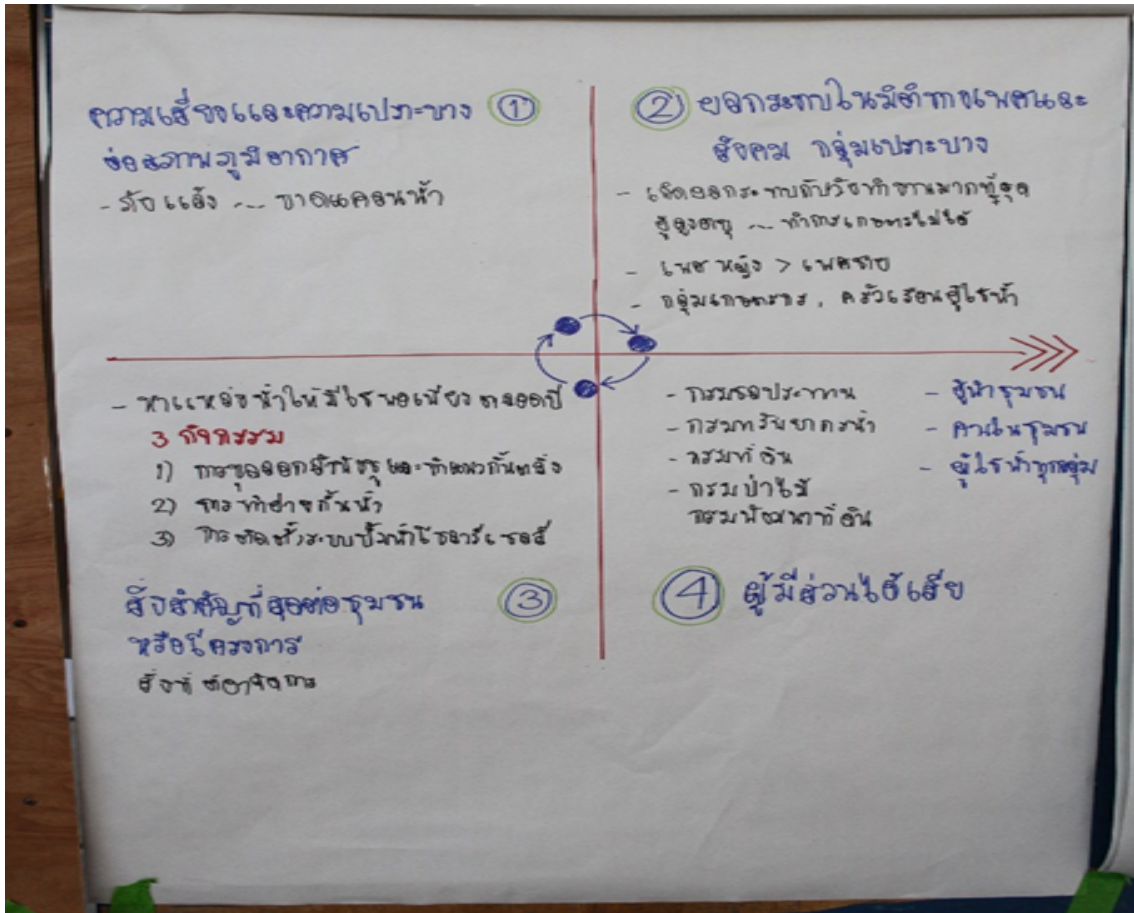 ความเสี่ยงและความเปราะบาง ①
ต่อสภาพภูมิอากาศ
- ภัยแล้ง ... ขาดแคลนน้ำ
② ผลกระทบในมิติทางเพศและ
สังคม กลุ่มเปราะบาง
- เกิดผลกระทบกับวัยทำงานมากที่สุด
ผู้สูงอายุ ... ทำการเกษตรไม่ได้
- เพศหญิง > เพศชาย
- กลุ่มเกษตรกร, ครัวเรือนผู้ใช้น้ำ
- หาแหล่งน้ำให้มีใช้พอเพียงตลอดปี
3 กิจกรรม
1) การขุดลอกลำน้ำชู และทำแนวกั้นตลิ่ง
2) การทำฝายกั้นน้ำ
3) การติดตั้งระบบปั๊มน้ำโซลาร์เซลล์
สิ่งสำคัญที่สุดต่อชุมชน ③
หรือโครงการ
สิ่งที่ต้องจัดการ
- กรมชลประทาน
- กรมทรัพยากรน้ำ
- กรมที่ดิน
- กรมป่าไม้
กรมพัฒนาที่ดิน
- ผู้นำชุมชน
- คนในชุมชน
- ผู้ใช้น้ำทุกกลุ่ม
④ ผู้มีส่วนได้เสีย